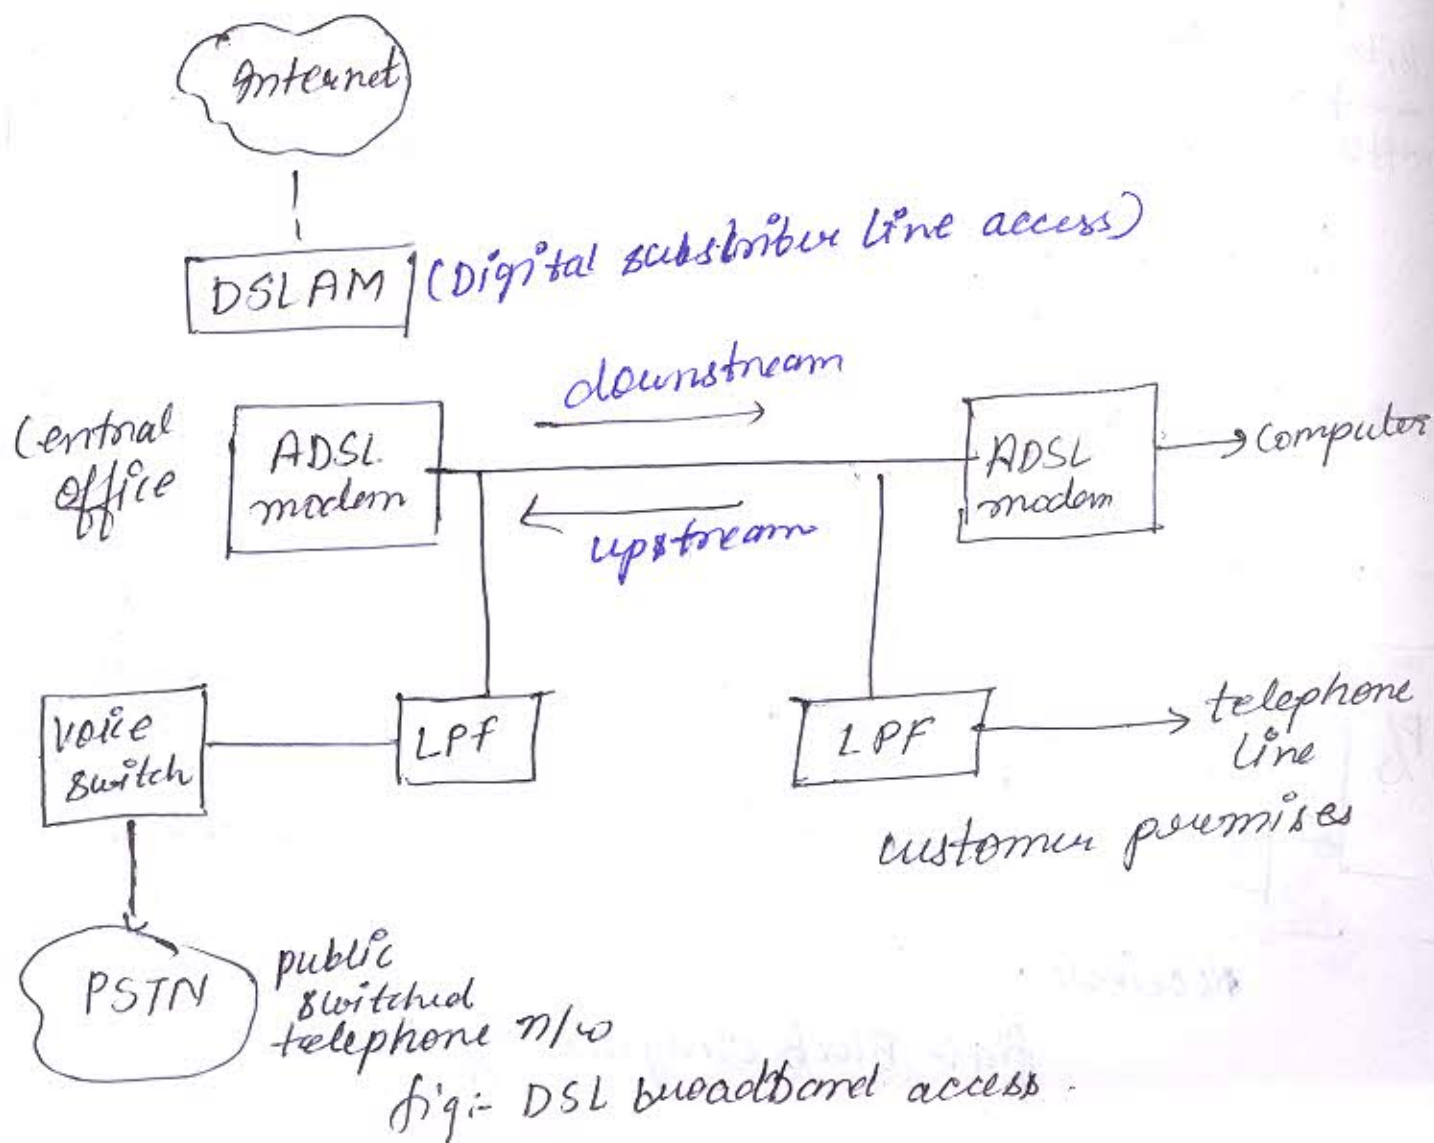 Internet
DSLAM
(Digital subscriber line access)
downstream
Central
office
ADSL
modem
ADSL
modem
computer
upstream
voice
switch
LPF
LPF
telephone
line
customer premises
PSTN
public
switched
telephone n/w
fig:- DSL broadband access.